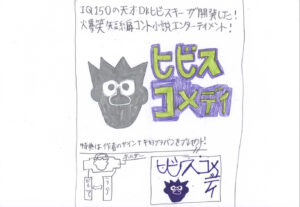 IQ150の天才DKヒビスキーが開発した!
大爆笑短編コント小説エンターテイメント!
ヒビス
コメディ
特典は作者のサイン+手形プラバンをプレゼント!
ホルダー
ヒビスコメ
ディ